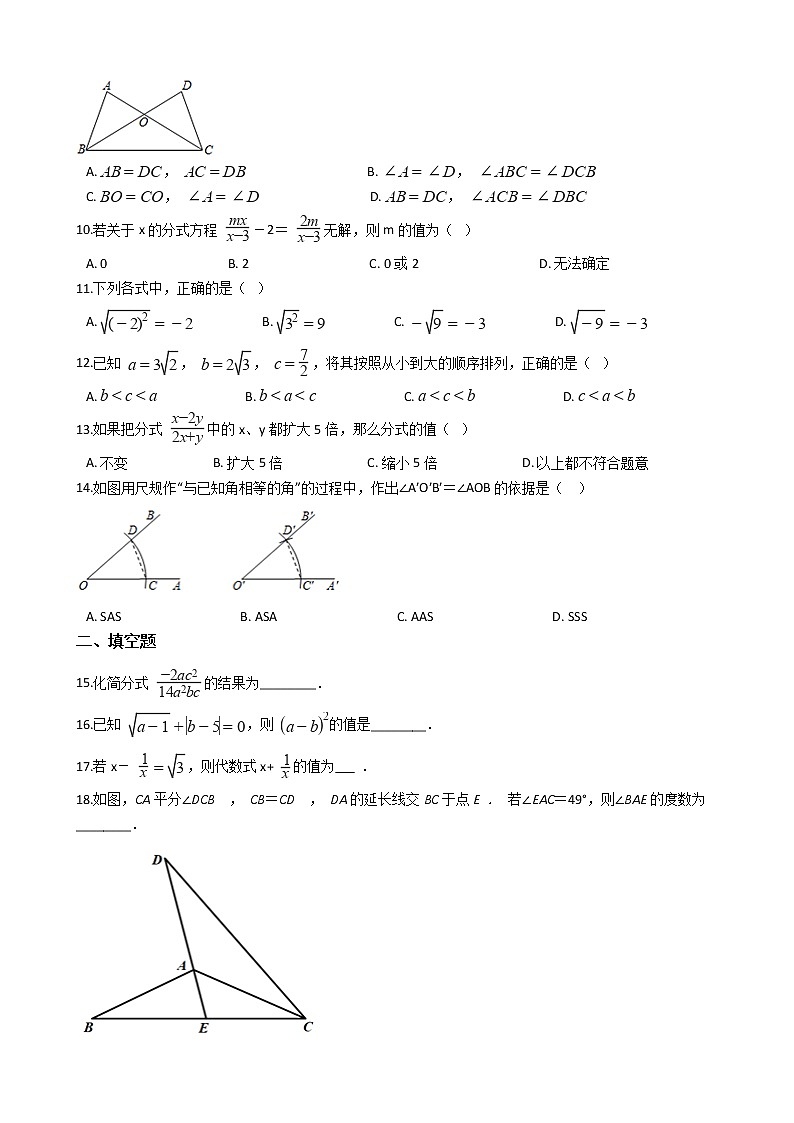 A D
O
B C
A. AB＝DC， AC＝DB B. ∠A＝∠D， ∠ABC＝∠DCB
C. BO＝CO， ∠A＝∠D D. AB＝DC， ∠ACB＝∠DBC
10.若关于 x 的分式方程 mx/(x−3) −2＝ 2m/(x−3) 无解，则 m 的值为（ ）
A. 0 B. 2 C. 0 或 2 D. 无法确定
11.下列各式中，正确的是（ ）
A. √((−2)²) = −2 B. √(3²) = 9 C. −√9 = −3 D. √(−9) = −3
12.已知 a = 3√2 ， b = 2√3 ， c = 7/2 ，将其按照从小到大的顺序排列，正确的是（ ）
A. b < c < a B. b < a < c C. a < c < b D. c < a < b
13.如果把分式 (x−2y)/(2x+y) 中的 x、y 都扩大 5 倍，那么分式的值（ ）
A. 不变 B. 扩大 5 倍 C. 缩小 5 倍 D. 以上都不符合题意
14.如图用尺规作“与已知角相等的角”的过程中，作出∠A′O′B′＝∠AOB 的依据是（ ）
B B′
D D′
O C A O′ C′ A′
A. SAS B. ASA C. AAS D. SSS
二、填空题
15.化简分式 −2ac²/(14a²bc) 的结果为________．
16.已知 √(a−1) + |b−5| = 0，则 (a−b)² 的值是________．
17.若 x− 1/x = √3，则代数式 x+ 1/x 的值为___ ．
18.如图，CA 平分∠DCB ， CB＝CD ， DA 的延长线交 BC 于点 E ． 若∠EAC＝49°，则∠BAE 的度数为
________．
D
A
B E C